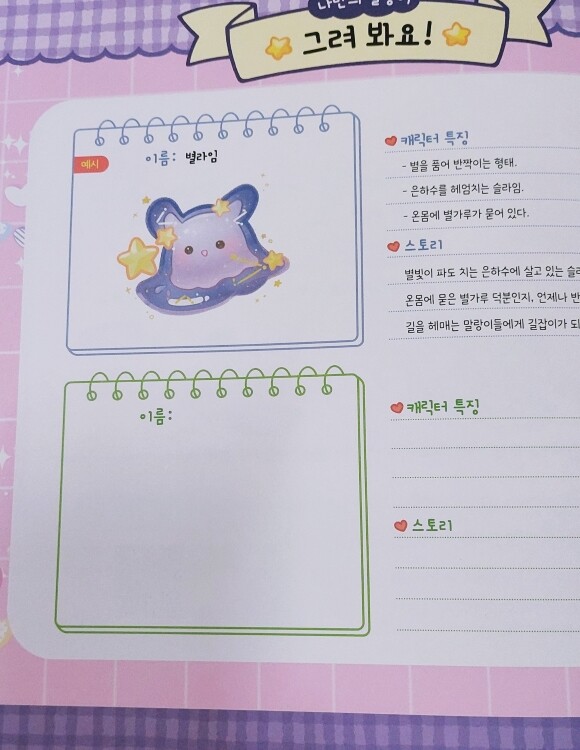 나만의
그려 봐요!
예시
이름: 별라임
캐릭터 특징
- 별을 품어 반짝이는 형태.
- 은하수를 헤엄치는 슬라임.
- 온몸에 별가루가 묻어 있다.
스토리
별빛이 파도 치는 은하수에 살고 있는
온몸에 묻은 별가루 덕분인지, 언제나
길을 헤매는 말랑이들에게 길잡이가
이름:
캐릭터 특징
스토리